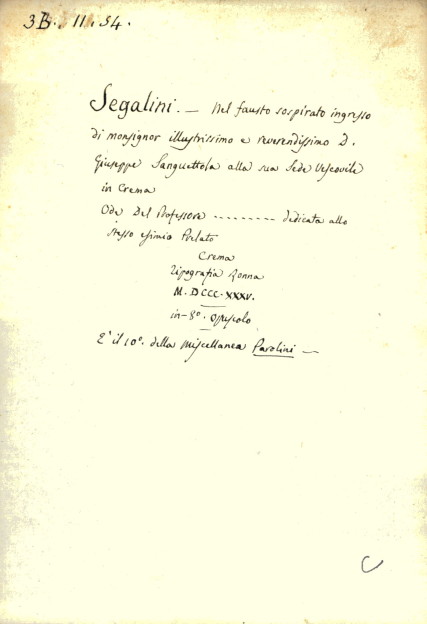 3B. 11. 54.
Segalini. — Nel fausto sospirato ingresso
di monsignor illustrissimo e reverendissimo D.
Giuseppe Sanguettola alla sua Sede Vescovile
in Crema
Ode Del Professore --------- dedicata allo
stesso esimio Prelato
Crema
Tipografia Ronna
M. DCCC. XXXV.
in-8º. Opuscolo
E' il 10º. della Miscellanea Parolini —
C